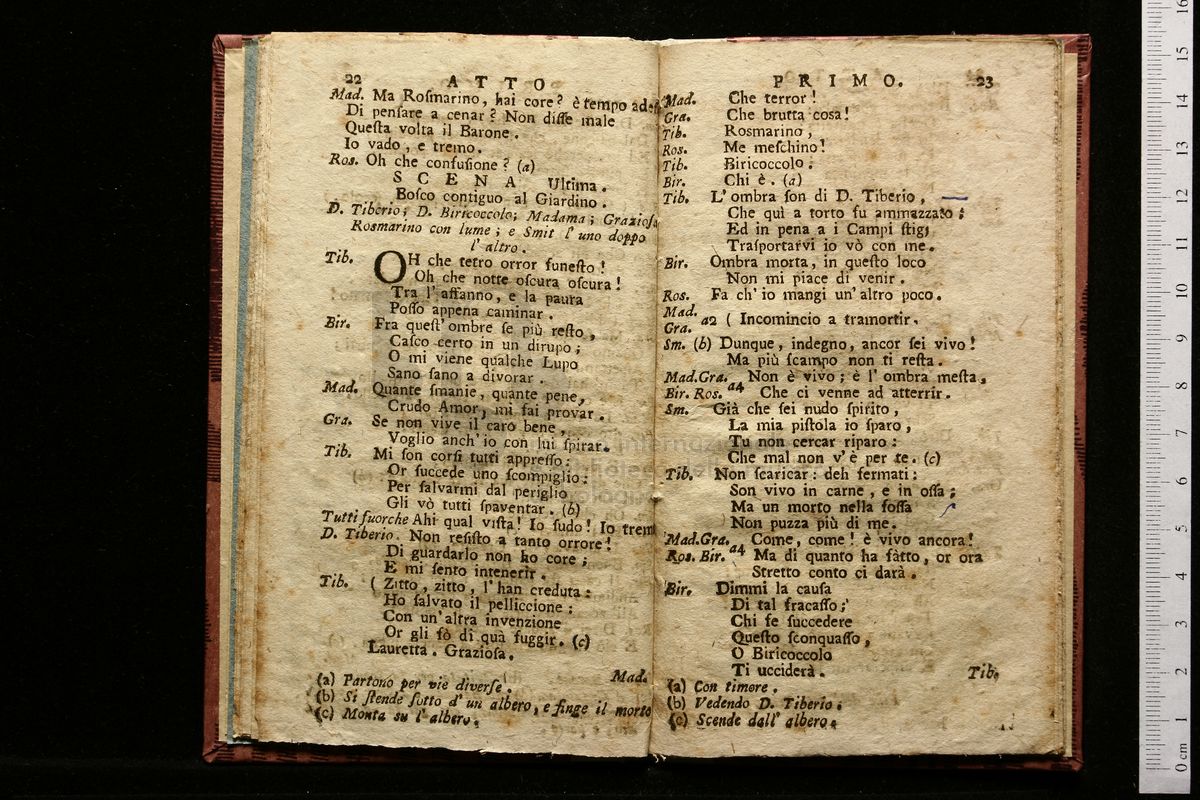 22 ATTO
Mad. Ma Rosmarino, hai core? è tempo
Di pensare a cenar? Non disse male
Questa volta il Barone.
Io vado, e tremo.
Ros. Oh che confusione? (a)
SCENA Ultima.
Bosco contiguo al Giardino.
D. Tiberio; D. Biricoccolo; Madama; Graziosa
Rosmarino con lume; e Smit l'uno doppo
l'altro.
Tib. OH che tetro orror funesto!
Oh che notte oscura oscura!
Tra l'affanno, e la paura
Posso appena caminar.
Bir. Fra quest'ombre se più resto,
Casco certo in un dirupo;
O mi viene qualche Lupo
Sano sano a divorar.
Mad. Quante smanie, quante pene,
Crudo Amor, mi fai provar.
Gra. Se non vive il caro bene,
Voglio anch'io con lui spirar.
Tib. Mi son corsi tutti appresso:
Or succede uno scompiglio:
Per salvarmi dal periglio
Gli vò tutti spaventar. (b)
Tutti fuorche Ahi qual vista! Io sudo! Io trem
D. Tiberio. Non resisto a tanto orrore!
Di guardarlo non ho core;
E mi sento intenerir.
Tib. (Zitto, zitto, l'han creduta:
Ho salvato il pelliccione:
Con un'altra invenzione
Or gli fò di quà fuggir. (c)
Lauretta. Graziosa.
Mad.
(a) Partono per vie diverse.
(b) Si stende sotto d'un albero, e finge il morto
(c) Monta su l'albero.
PRIMO. 23
Mad. Che terror!
Gra. Che brutta cosa!
Tib. Rosmarino,
Ros. Me meschino!
Tib. Biricoccolo:
Bir. Chi è. (a)
Tib. L'ombra son di D. Tiberio,
Che quì a torto fu ammazzato;
Ed in pena a i Campi stigj
Trasportarvi io vò con me.
Bir. Ombra morta, in questo loco
Non mi piace di venir.
Ros. Fa ch'io mangi un'altro poco.
Mad.
Gra. a2 (Incomincio a tramortir.
Sm. (b) Dunque, indegno, ancor sei vivo!
Ma più scampo non ti resta.
Mad.Gra. Non è vivo; è l'ombra mesta,
Bir. Ros. a4 Che ci venne ad atterrir.
Sm. Già che sei nudo spirito,
La mia pistola io sparo,
Tu non cercar riparo:
Che mal non v'è per te. (c)
Tib. Non scaricar: deh fermati:
Son vivo in carne, e in ossa;
Ma un morto nella fossa
Non puzza più di me.
Mad.Gra. Come, come! è vivo ancora!
Ros. Bir. a4 Ma di quanto ha fatto, or ora
Stretto conto ci darà.
Bir. Dimmi la causa
Di tal fracasso;
Chi fe succedere
Questo sconquasso,
O Biricoccolo
Ti ucciderà.
Tib.
(a) Con timore.
(b) Vedendo D. Tiberio.
(c) Scende dall'albero.
0 cm 1 2 3 4 5 6 7 8 9 10 11 12 13 14 15 16